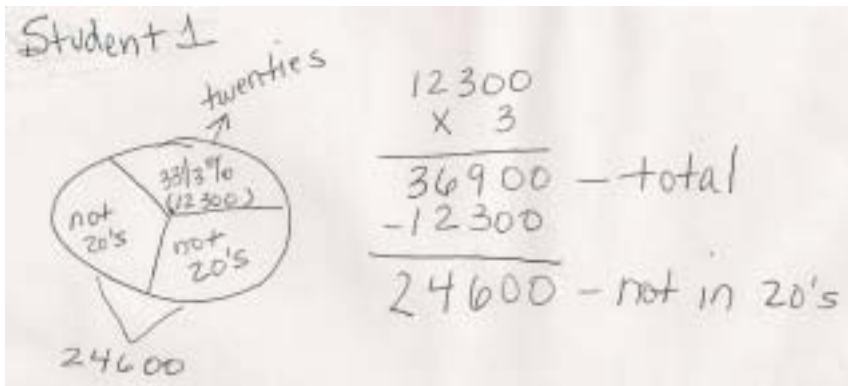 Student 1
twenties
33 1/3 %
(12300)
not
20's
not
20's
24600
12300
x 3
36900 – total
-12300
24600 – not in 20's